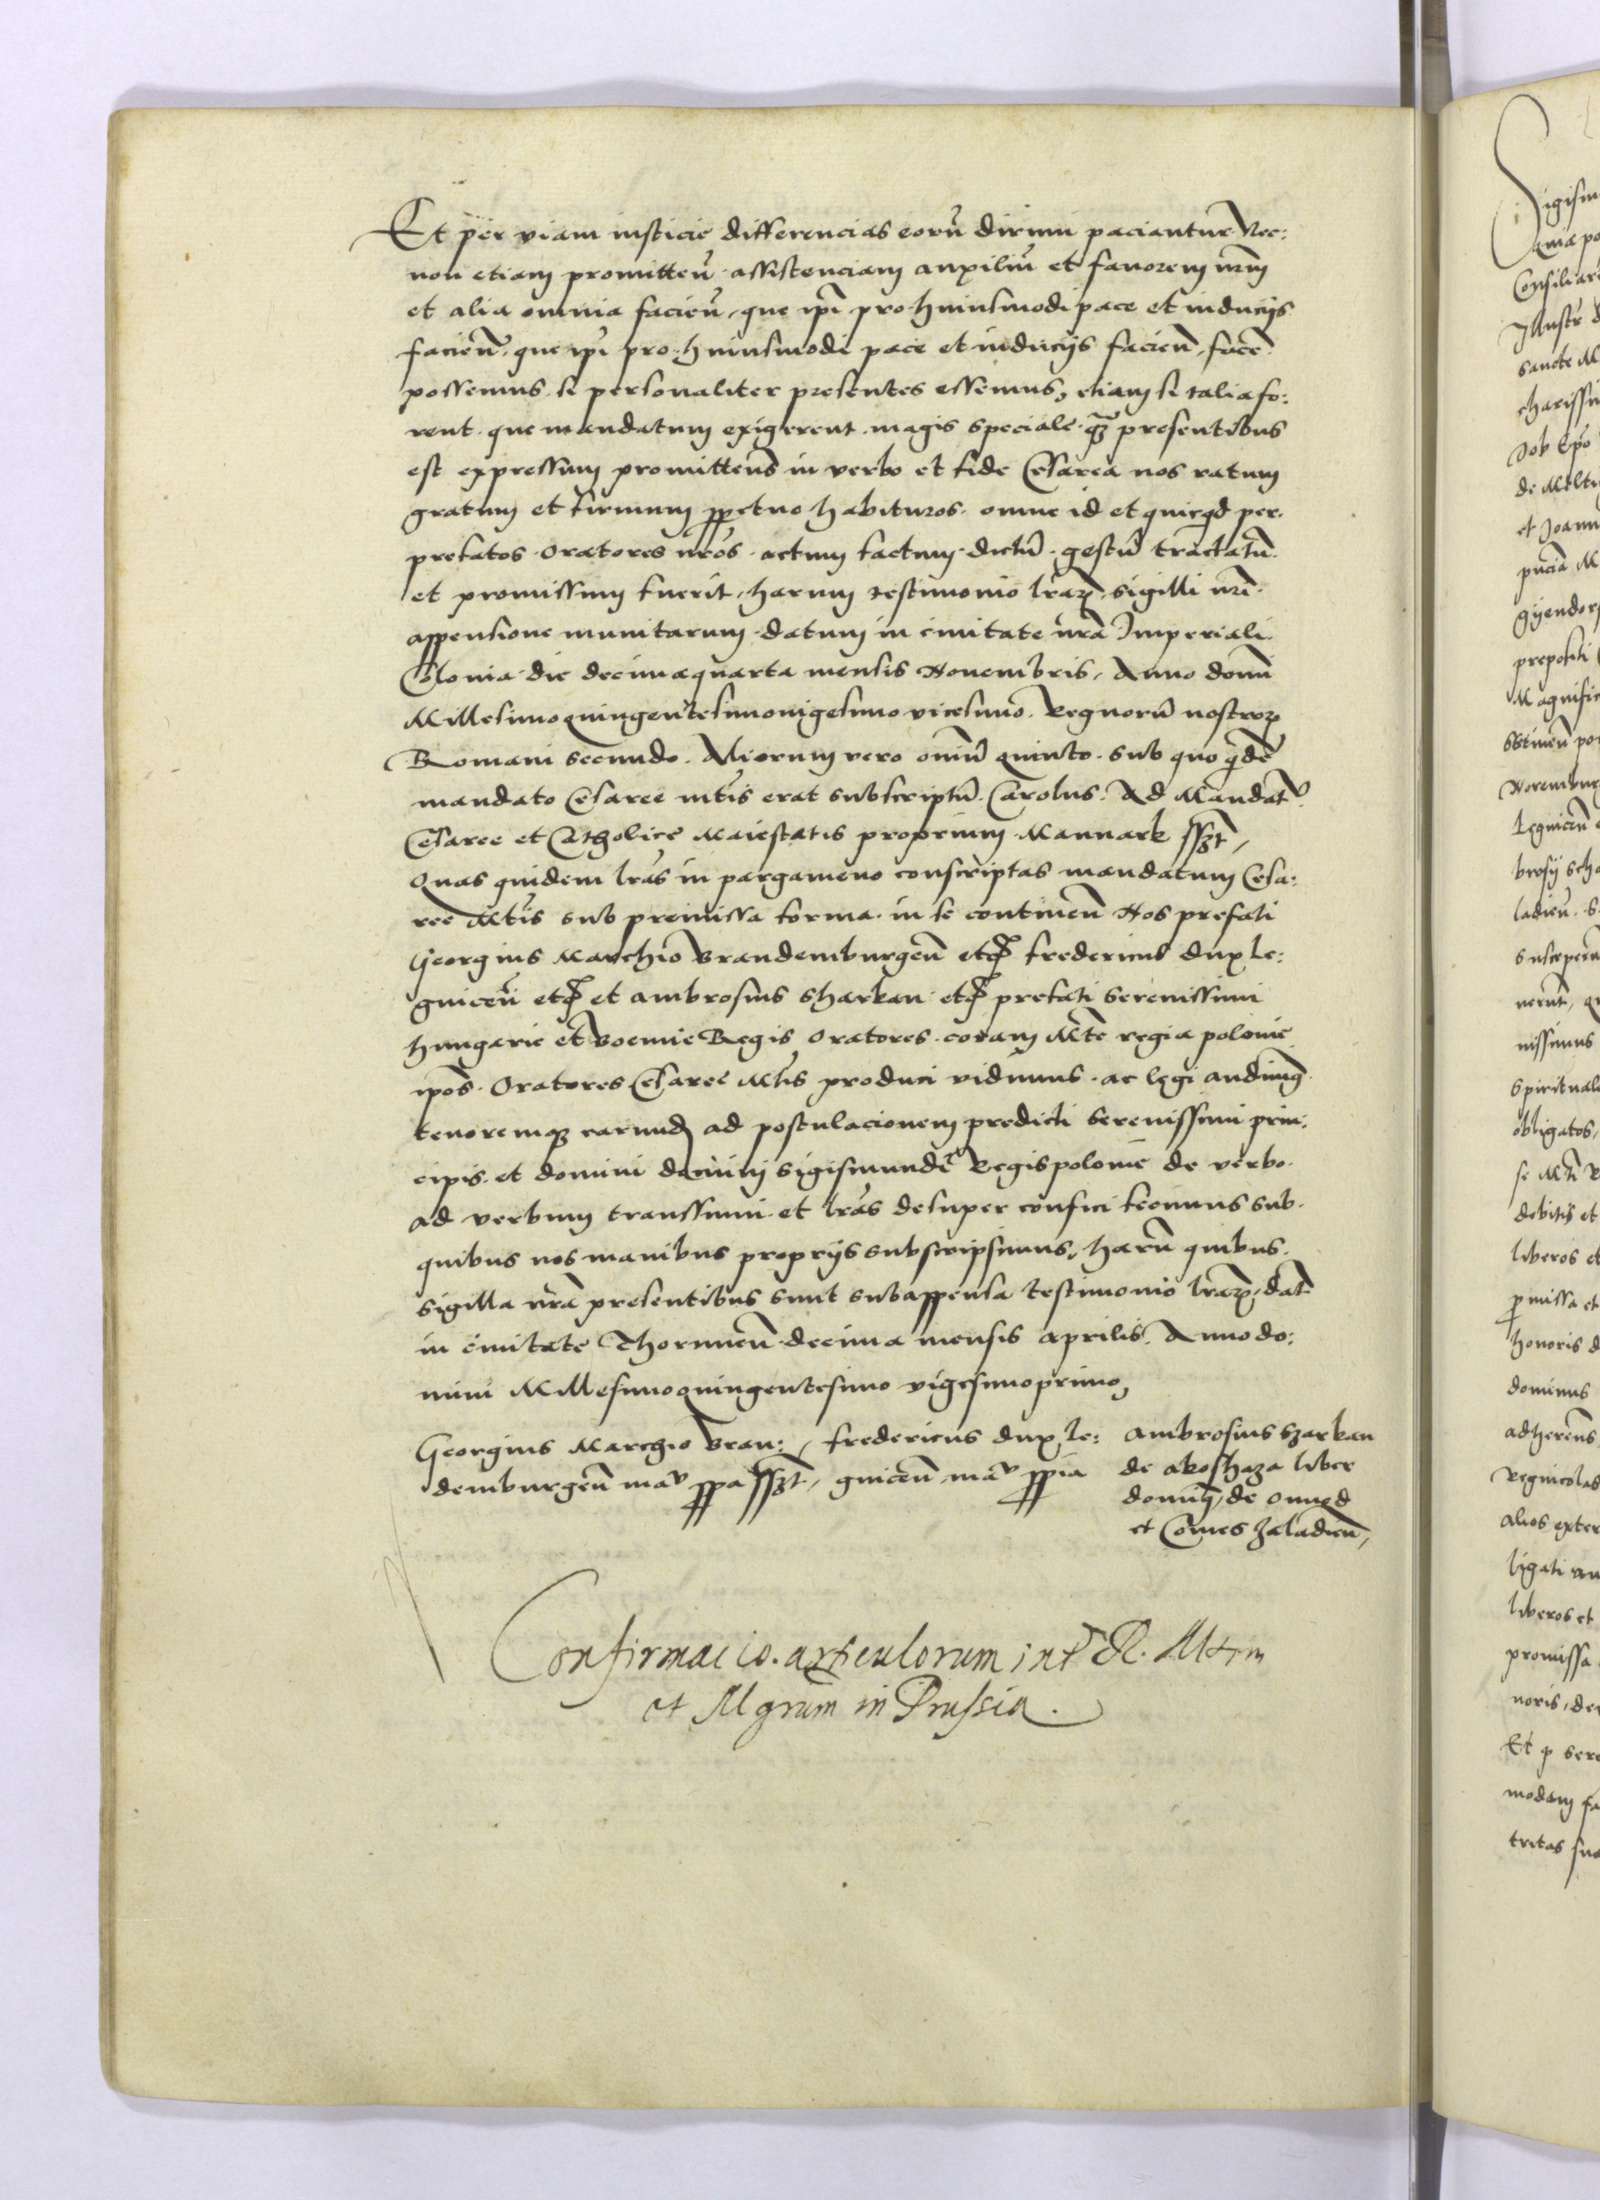 Et per viam iusticie differencias eorũ dirimi paciantur Nec:
non etiam promitteñ assistenciam auxiliũ et fauorem nr̃m
et alia omnia facieñ, que ip̃i pro huiusmodi pace et inducijs
facieñ, que ip̃i pro huiusmodi pace et inducijs facieñ, facẽ
possemus si personaliter presentes essemus, etiam si talia fo:
rent que mandatum exigerent magis speciale q̃ꝫ presentibus
est expressum promittens̃ in verbo et fide Cesarea nos ratum
gratum et firmum ꝑpetuo habituros. omne id et quicqd per
prefatos Oratores nr̃os actum factum dictũ gestũ tractatũ
et promissum fuerit, harum testimonio lr̃aꝝ sigilli nr̃i
appensione munitarum datum in ciuitate nr̃a Imperiali
Colonia die decimaquarta mensis Nouembris, Anno domi
Millesimoquingentesimouigesimo vicesimo. Regnorũ nostroꝝ
Romani secundo. Aliorum vero om̃iũ quinto. sub quo q̃dẽ
mandato Cesaree mt̃is erat subscriptũ. Carolus. Ad Mandatũ
Cesaree et Catholice Maiestatis proprium Mannark sszt̃,
Quas quidem lr̃as in pargameno conscriptas mandatum Cesa:
ree Mt̃is sub premissa forma in se contineñ Nos prefati
Georgius Marchio Brandemburgeñ etcꝫ fredericus dux le:
gniceñ etcꝫ et ambrosius sharkan etcꝫ prefati serenissimi
hungarie et Boemie Regis Oratores coram Mt̃e regia polonie
ip̃os Oratores Cesaree Mt̃is produci vidimus ac legi audiuimꝰ
tenoremqꝫ earundꝫ ad postulacionem predicti serenissimi prin:
cipis et domini domini sigismundi Regis polonie de verbo
ad verbum transsumi et lr̃as desuper confici fecimus sub
quibus nos manibus proprijs subscripsimus, harũ quibus
sigilla nr̃a presentibus sunt subappensa testimonio lr̃aꝝ, dat̃
in ciuitate Thorunieñ decima mensis aprilis. Anno do:
mini Millesimoquingentesimo vigesimoprimo,
Georgius Marchio Bran:, fredericus dux le: Ambrosius Szarkan
demburgeñ maũ ꝓpa sszt̃, gniceñ maũ ꝓpia de akoshaza liber
dominꝰ, de onnod
et Comes Zaladieñ,
Confirmacio articulorum int̃ R. Mtem
et Mgrum in Prussia.